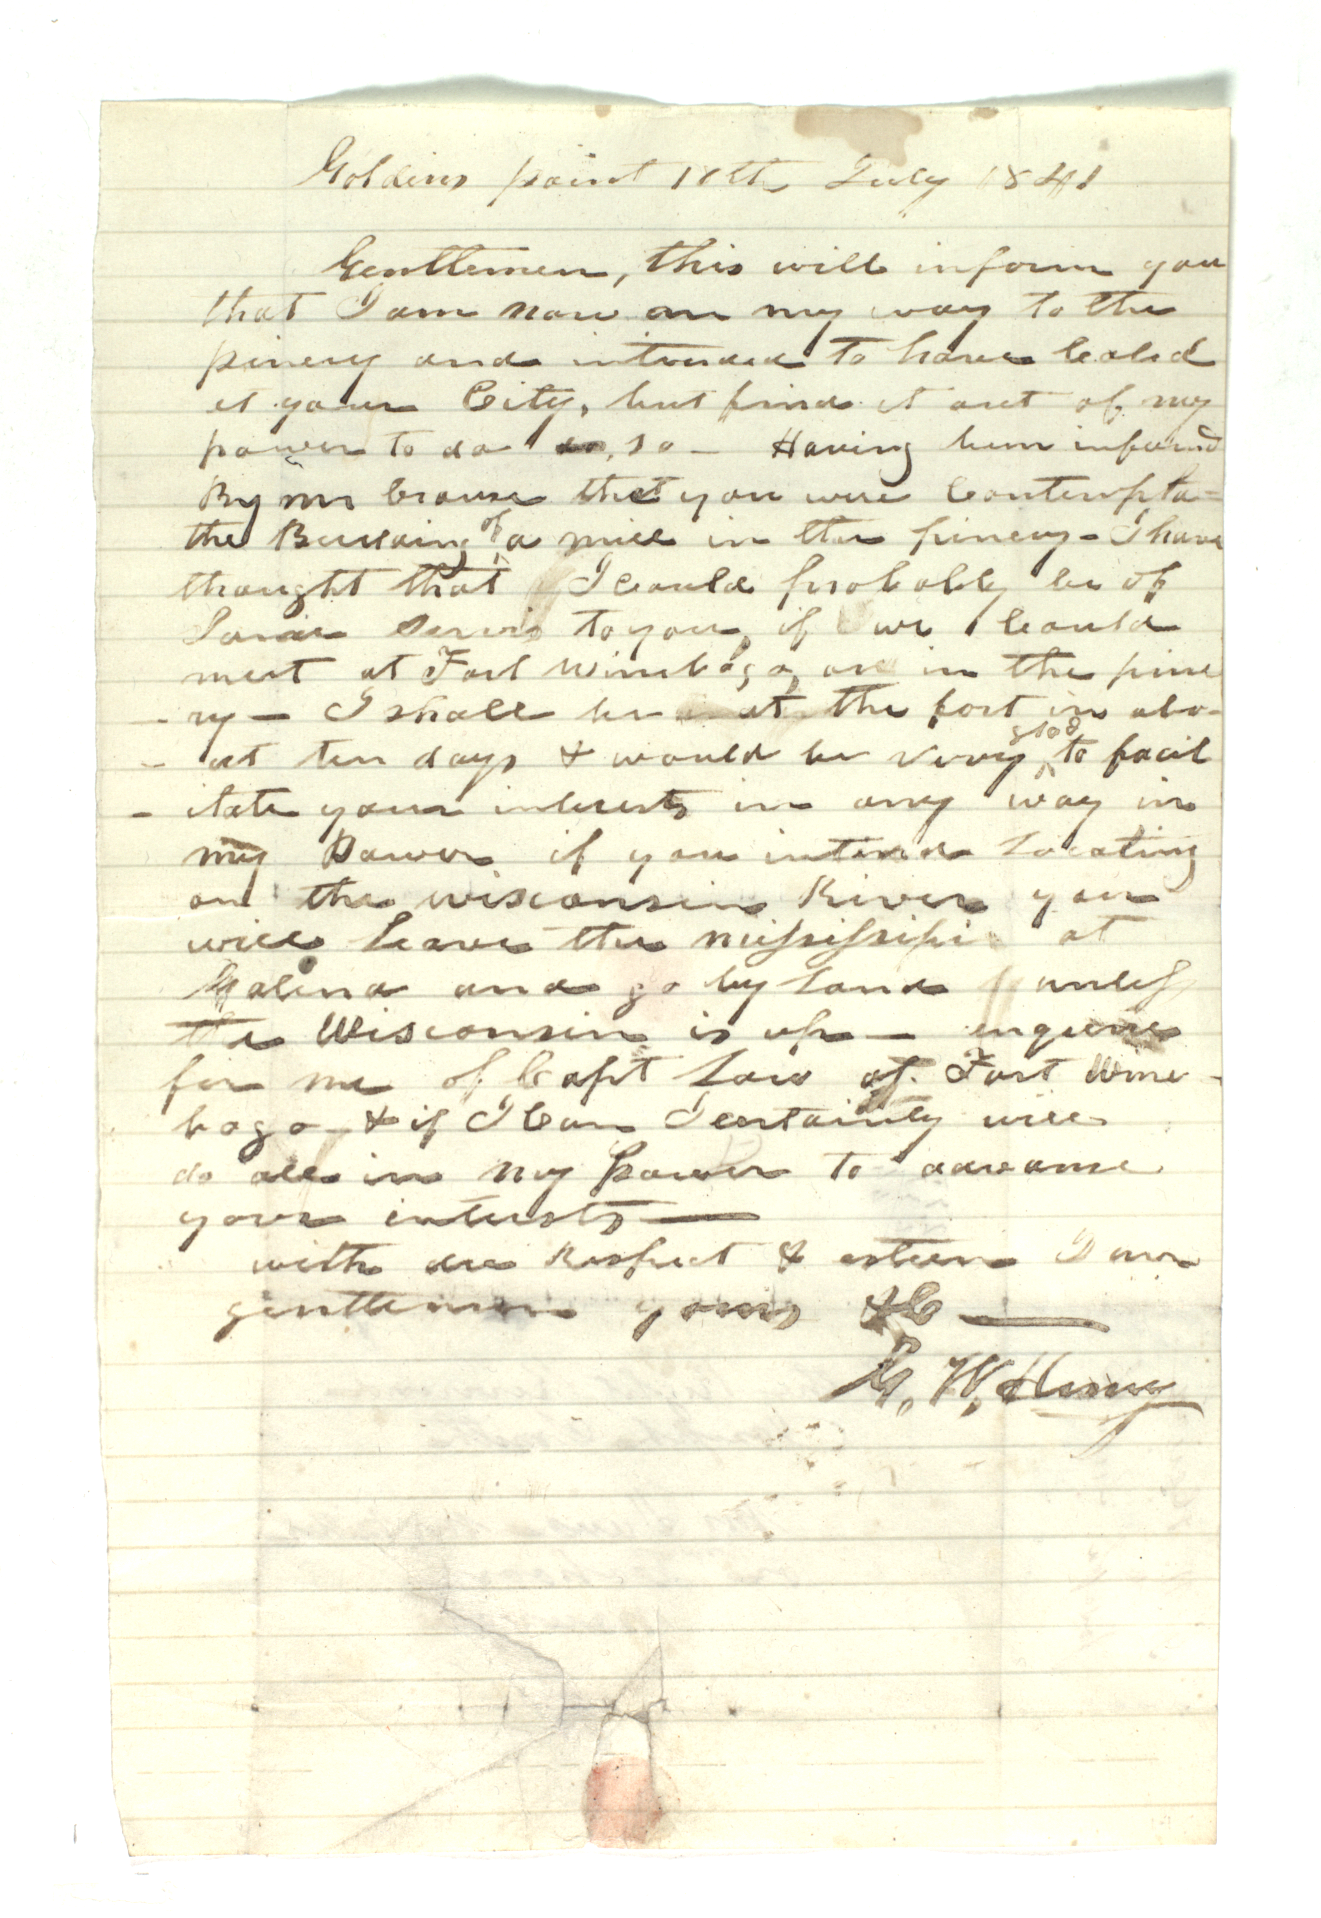 Goldins point 18th July 1841
Gentlemen, this will inform you
that I am now on my way to the
pinery and intended to have Caled
at your City, but find it out of my
power to do so - Having been informd
By mr Crouse that you were Contempla=
the Building of a mill in the pinery - I have
thought that I Could probably be of
Some Servis to you, if we Could
meet at Fort Winebago, or in the pine
- ry - I shall be at the fort in abo-
- ut ten days & would be very glad to facil
- itate your interests in any way in
my Power if you intend Locating
on the wisconsin River you
will Leave the missisippi at
Galena and go by Land unless
the Wisconsin is up - enquire
for me of Capt Low at Fort Wine-
bago - & if I Can I certainly will
do all in my power to advance
your intersts —
with due Respect & esteem I am
gentlemen yours &C —
G. W. Henry